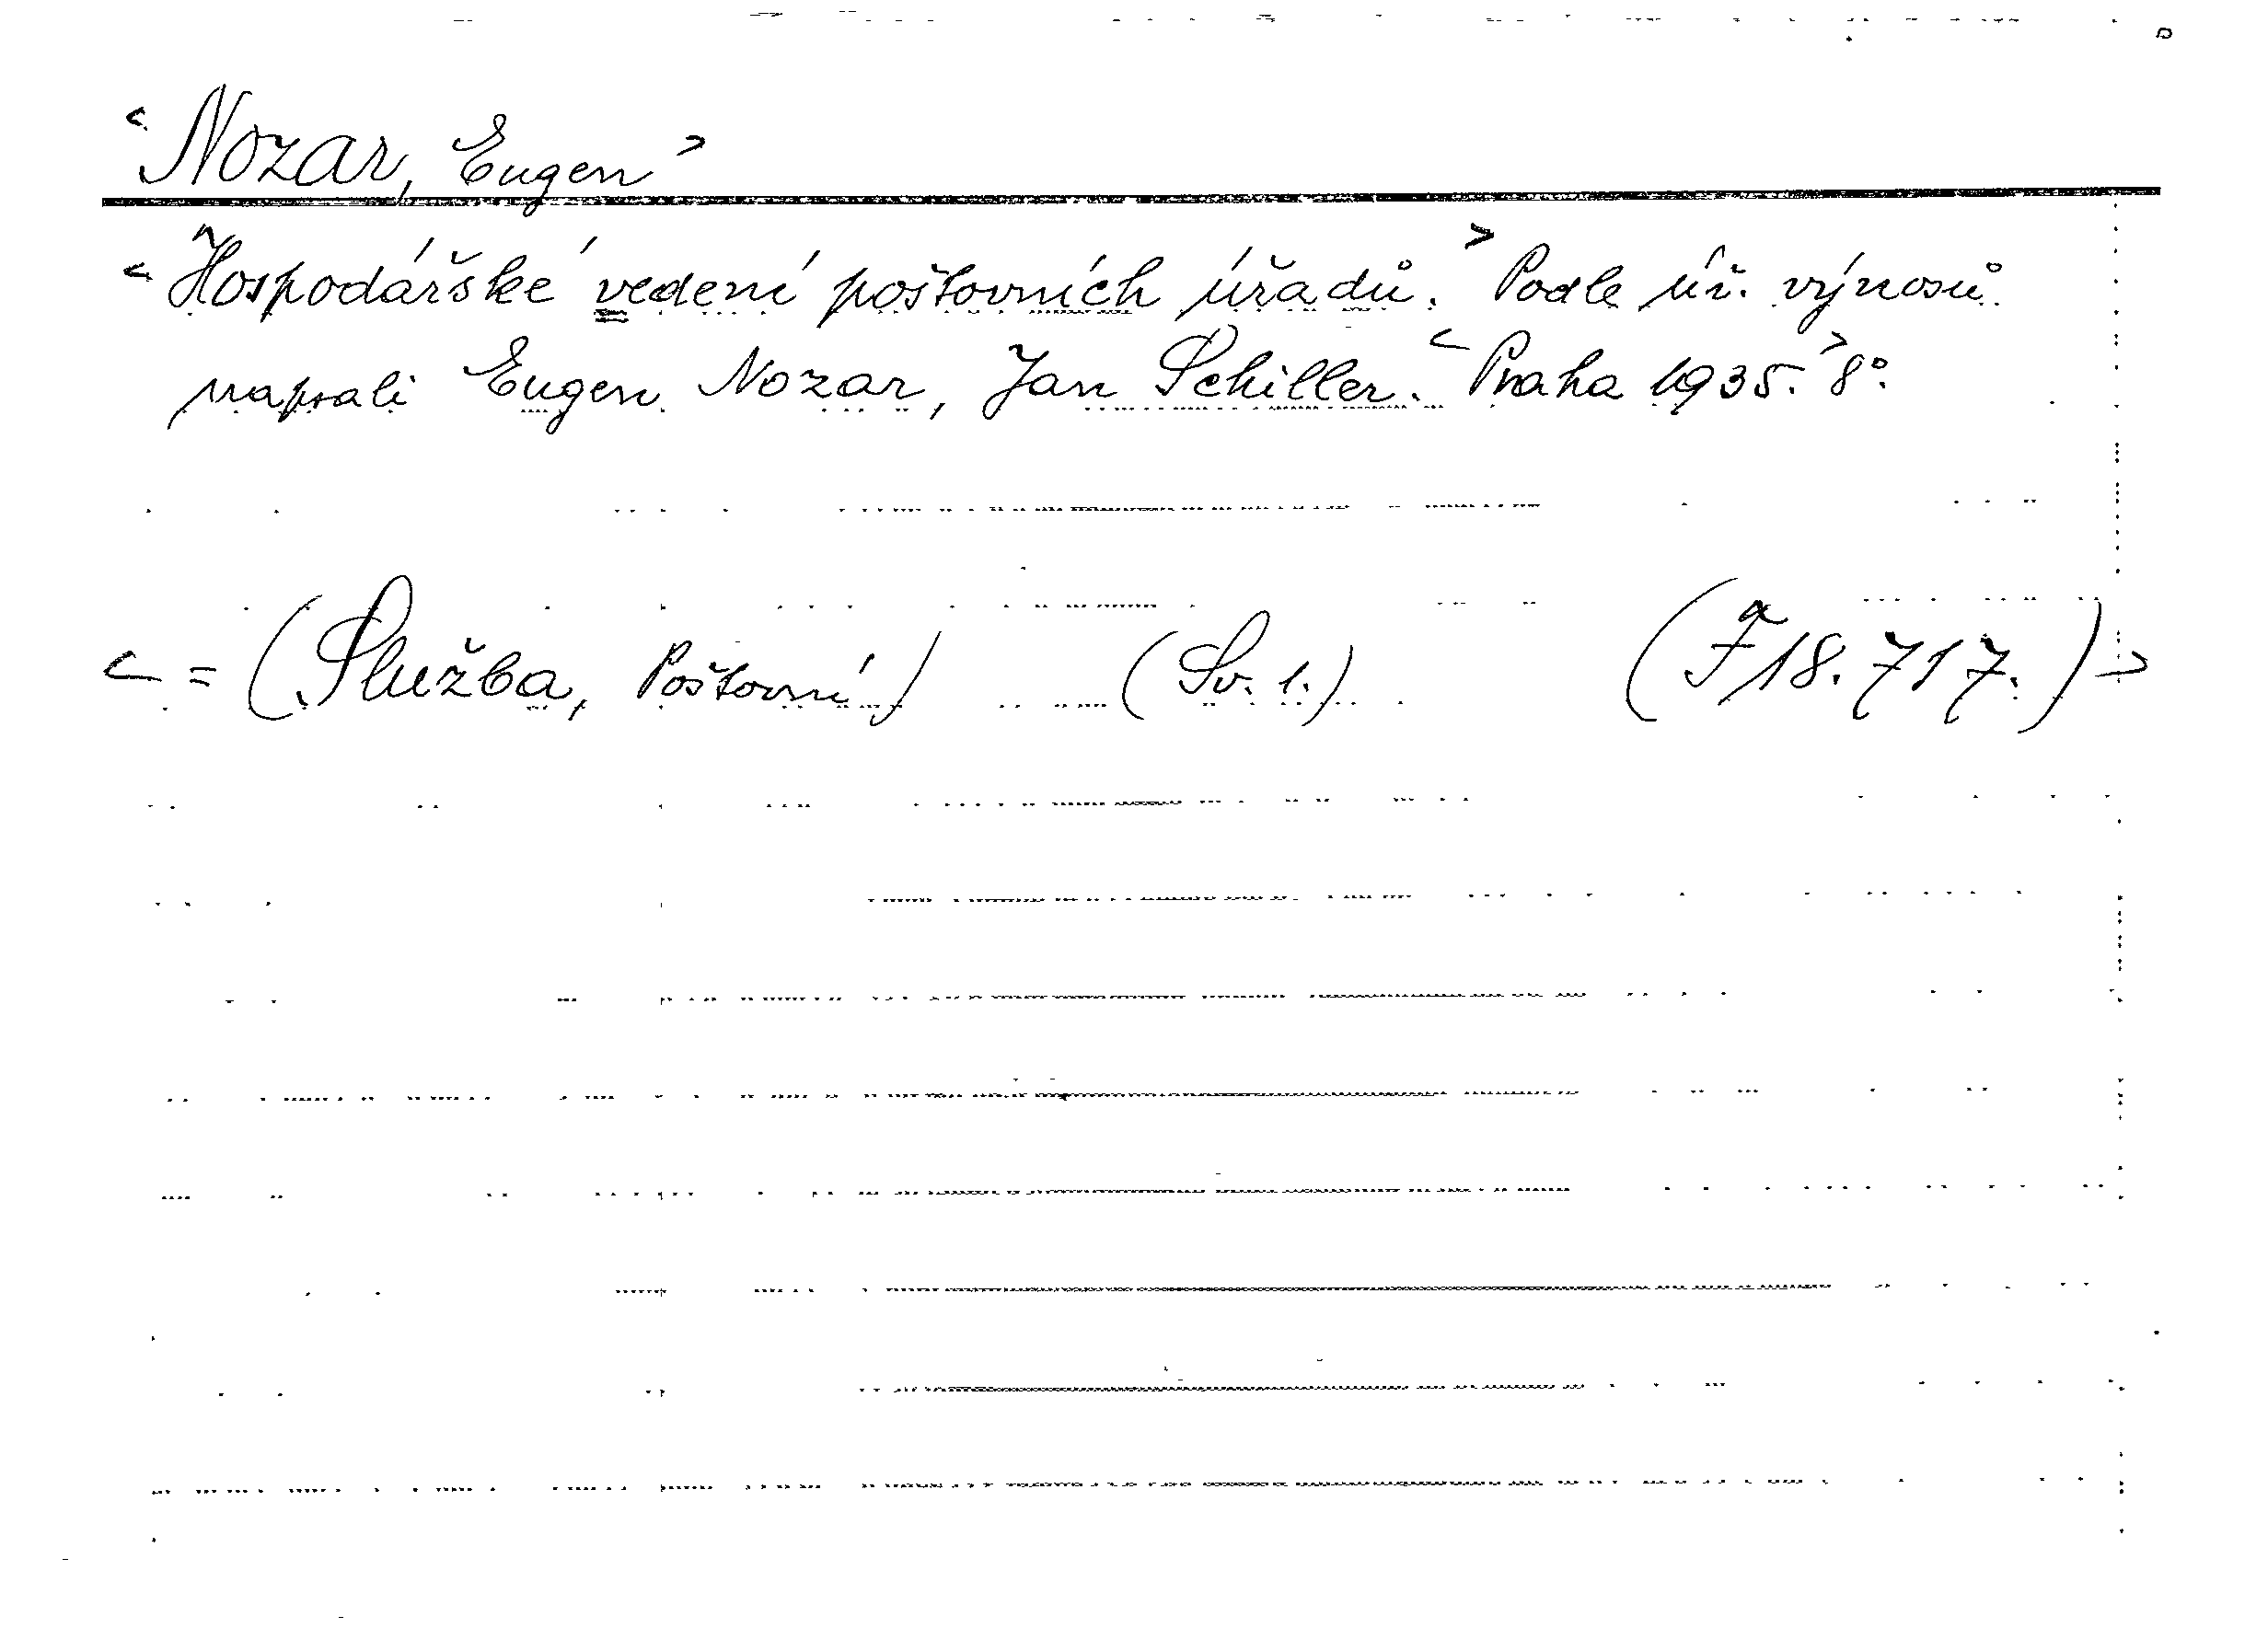 <Nozar, Eugen>
<Hospodářské vedení poštovních úřadů.> Podle úř. výnosů
napsali Eugen Nozar, Jan Schiller. <Praha 1935.> 8°.
<= (Služba, Poštovní) (Sv. 1.) (F 18.717.)>